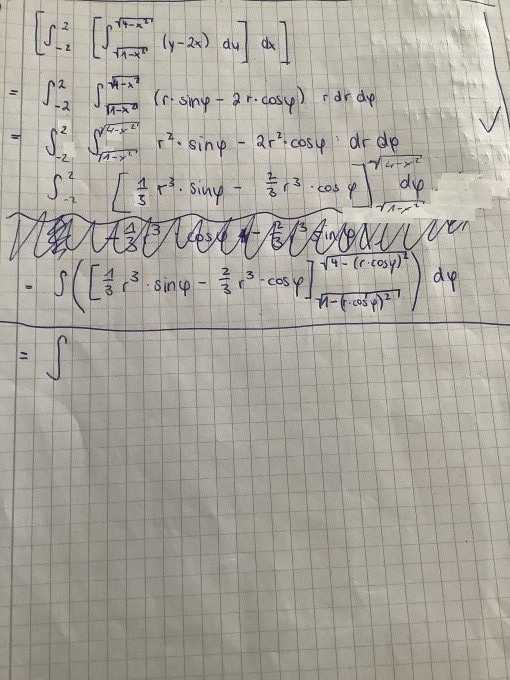 [∫₋₂² [∫_√(1-x²)^√(4-x²) (y-2x) dy] dx]
= ∫₋₂² ∫_√(1-x²)^√(4-x²) (r·sinφ - 2r·cosφ) r dr dφ
= ∫₋₂² ∫_√(1-x²)^√(4-x²) r²·sinφ - 2r²·cosφ dr dφ
∫₋₂² [1/3 r³·sinφ - 2/3 r³·cosφ]_√(1-x²)^√(4-x²) dφ
= ∫([1/3 r³·sinφ - 2/3 r³·cosφ]_√(1-(r·cosφ)²)^√(4-(r·cosφ)²)) dφ
= ∫